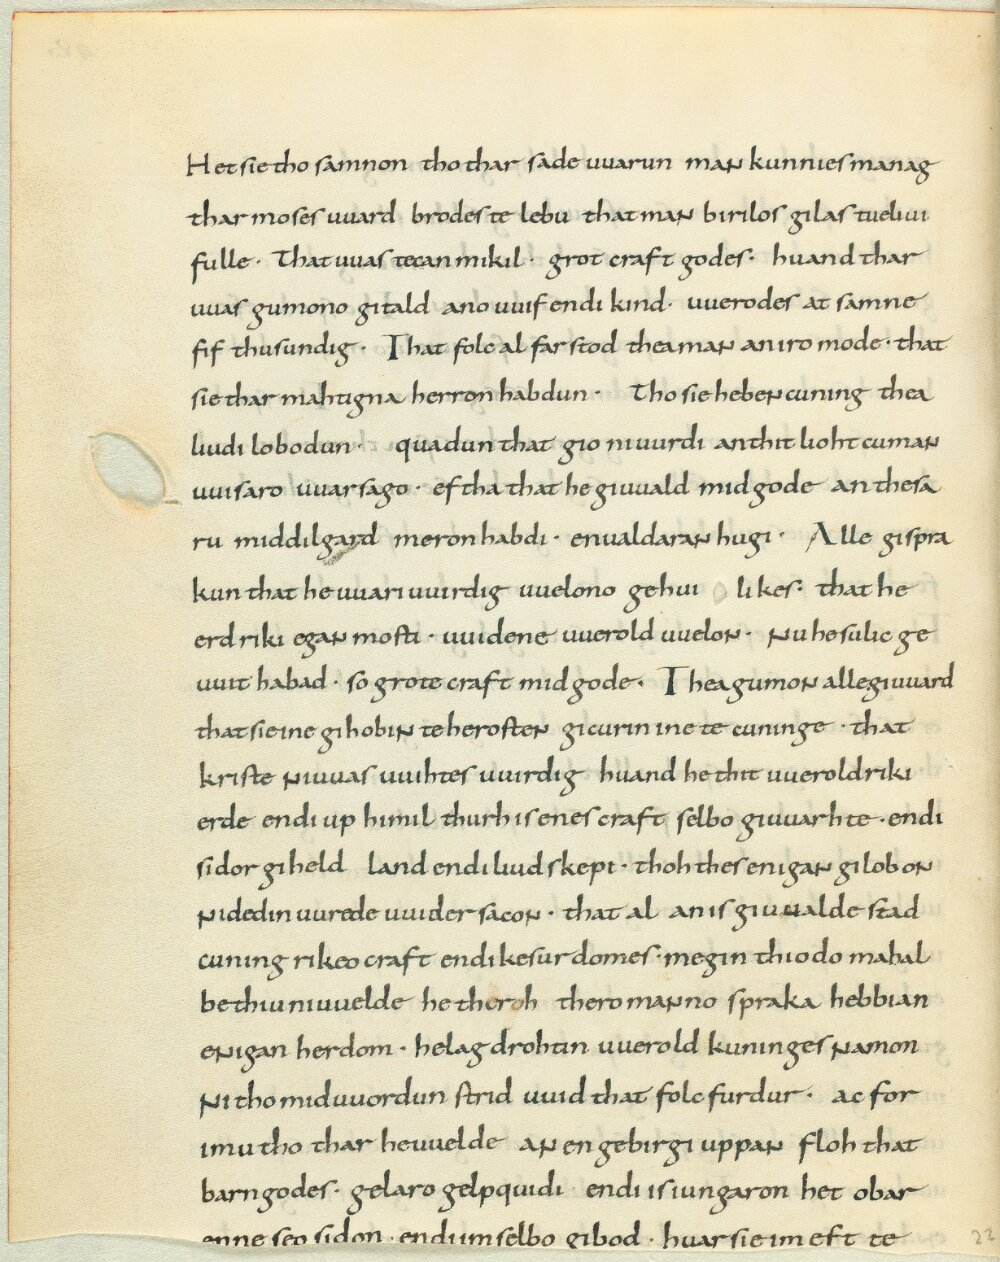 Het sie tho samnon tho thar sade uuarun man kunnies manag
thar moses uuard brodes te lebu that man birilos gilas tueliui
fulle · That uuas tecan mikil · grot craft godes · huand thar
uuas gumono gitald ano uuif endi kind · uuerodes at samne
fif thusundig · That folc al farstod thea man an iro mode · that
sie thar mahtigna herron habdun · Tho sie heben cuning thea
liudi lobodun · quadun that gio ni uurdi an thit lioht cuman
uuisaro uuarsago · eftha that he giuuald mid gode an thesa
ru middilgard meron habdi · enualdaran hugi · Alle gispra
kun that he uuari uuirdig uuelono gehui likes · that he
erdriki egan mosti · uuidene uuerold uuelon · nu he sulic ge
uuit habad · so grote craft mid gode · Thea gumon alle giuuard
that sie ine gihobin te herosten gicurin ine te cuninge · that
kriste ni uuas uuihtes uuirdig huand he thit uueroldriki
erde endi up himil thurh is enes craft selbo giuuarhte · endi
sidor giheld land endi liudskepi · thoh thes enigan gilobon
ni dedin uurede uuidersacon · that al an is giuualde stad
cuningrikeo craft endi kesurdomes · megin thiodo mahal
bethiu ni uuelde he theroh thero manno spraka hebbian
enigan herdom · helag drohtin uuerold kuninges namon
Ni tho mid uuordun strid uuid that folc furdur · ac for
imu tho thar he uuelde an en gebirgi uppan floh that
barn godes · gelaro gelpquidi endi is iungaron het obar
enne seo sidon · endi im selbo gibod · huar sie im eft te